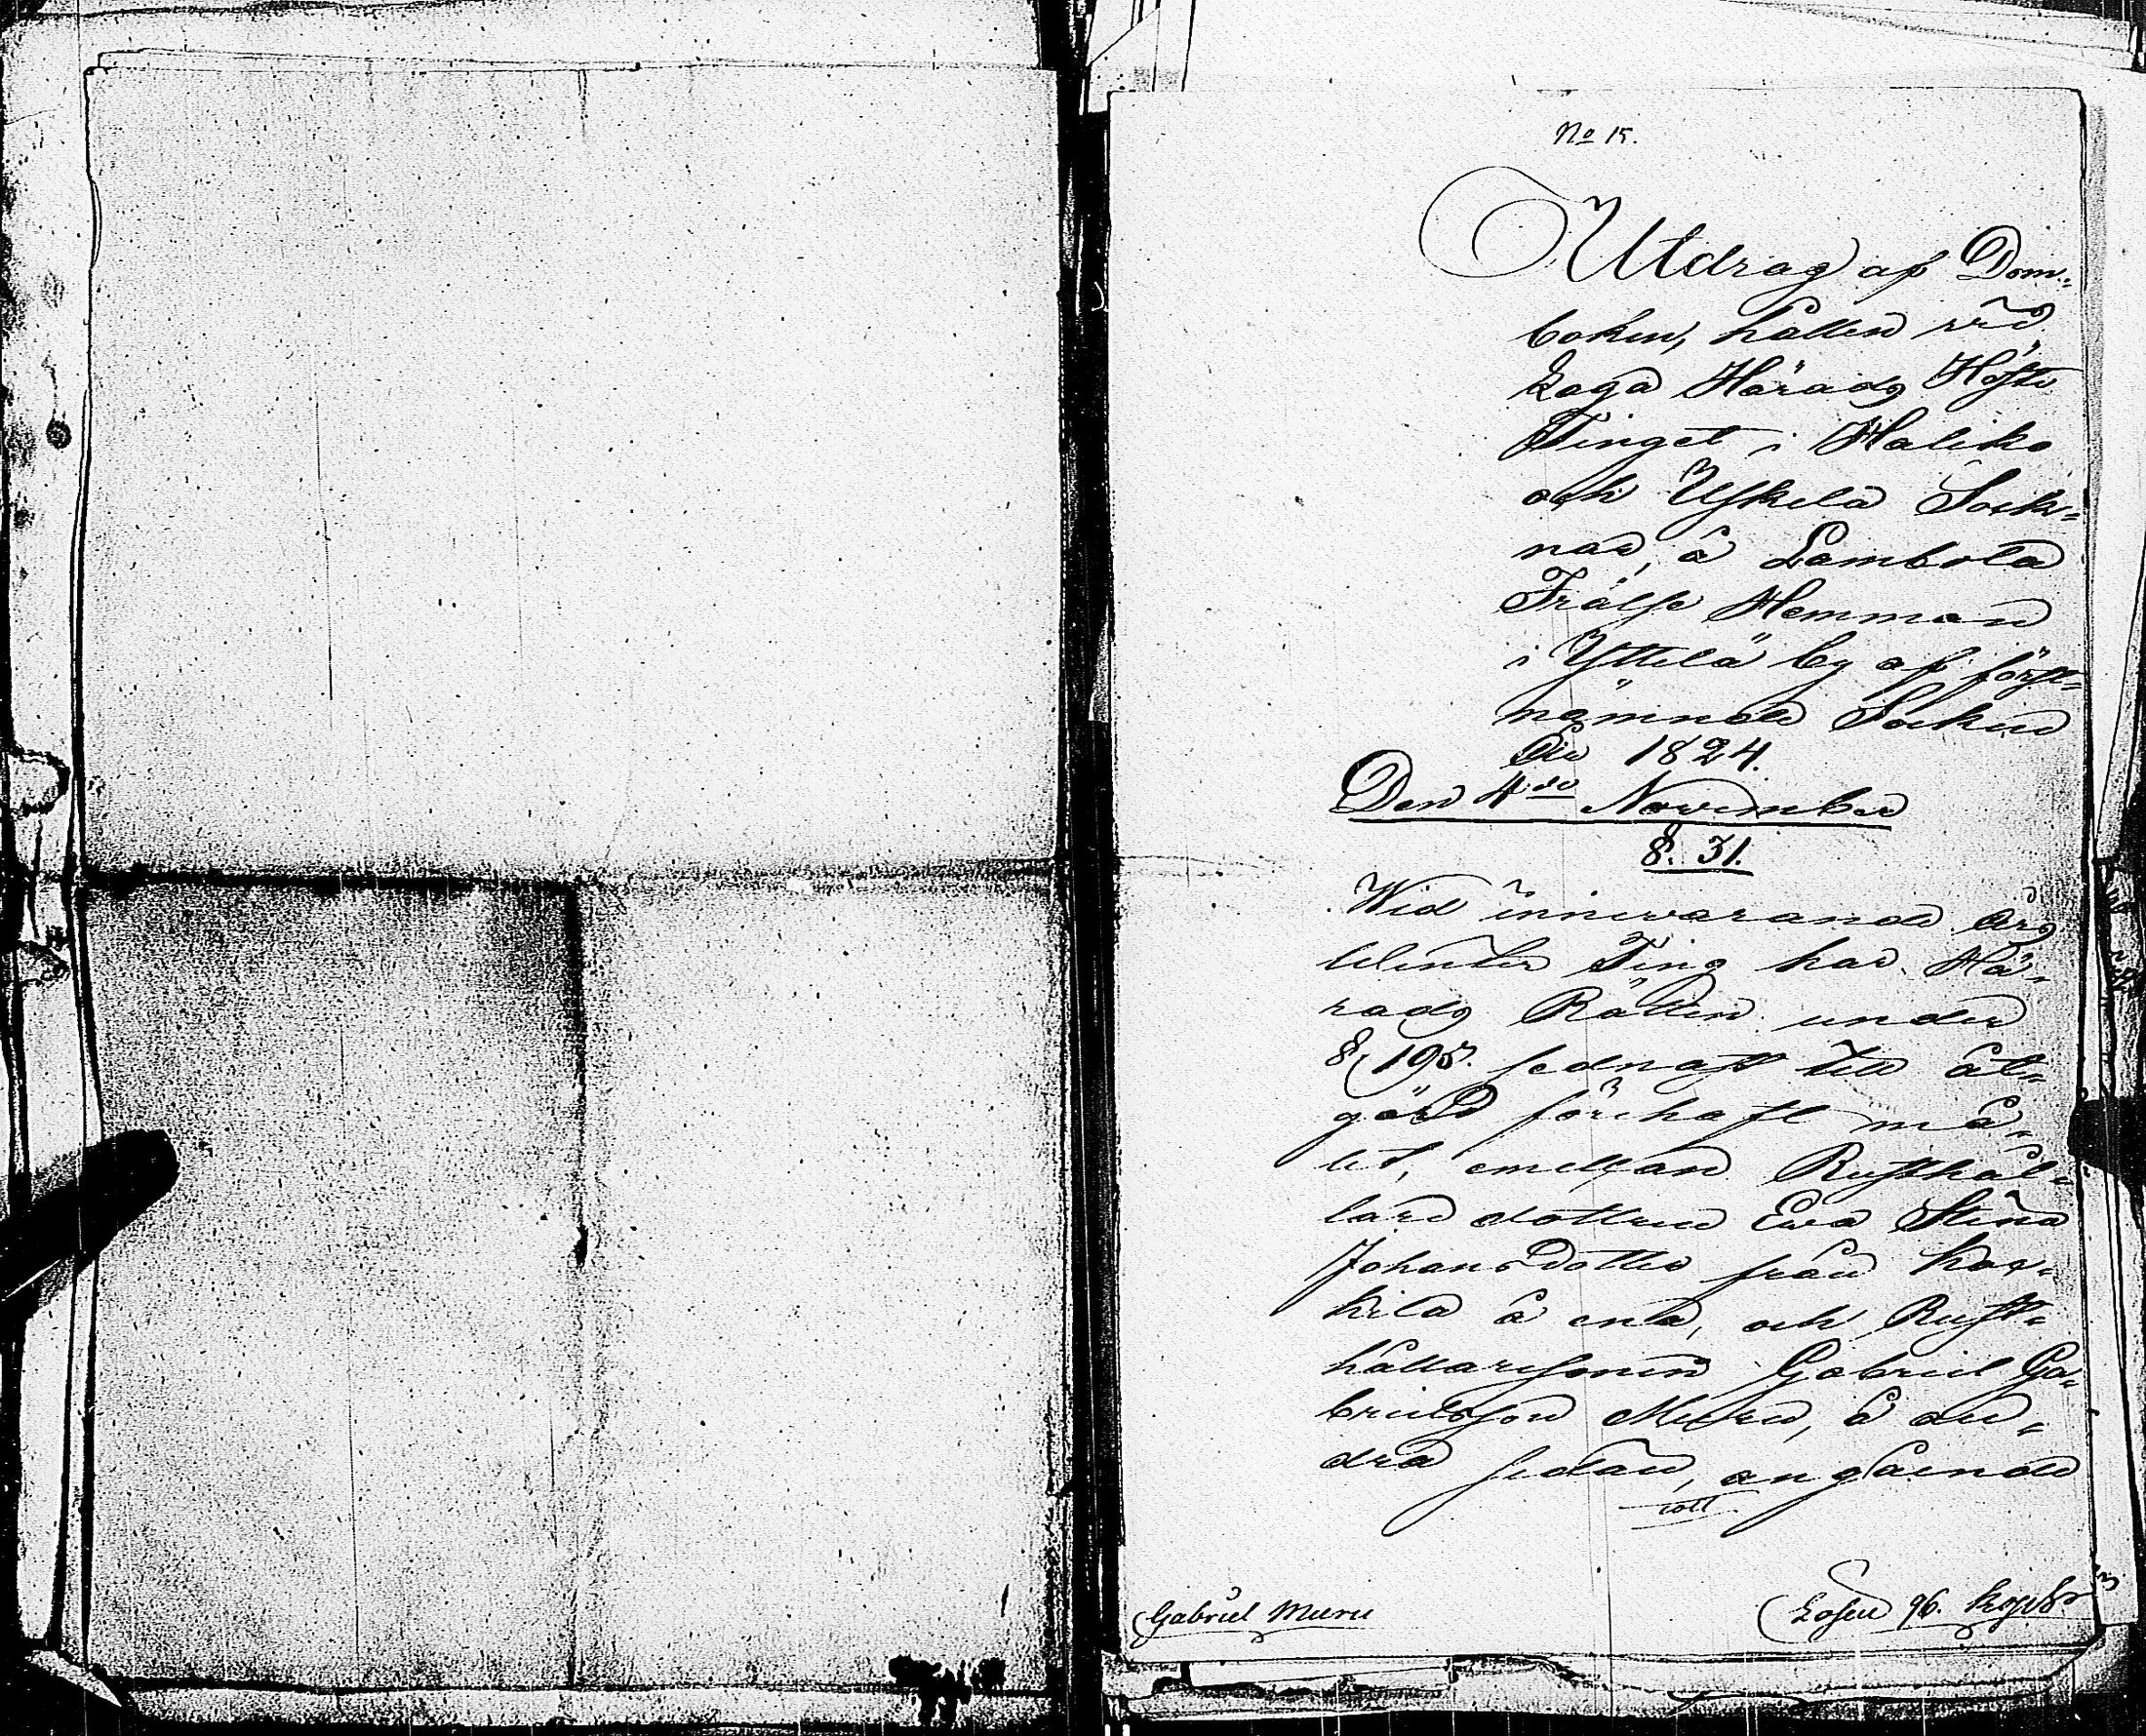 No 15.
Utdrag af Dom-
boken, hållen vid
Laga Härads Höste
Tinget i Haliko
och Uskela Sock-
nar, å Lambola
Frälse Hemman
i Yttelä by af först-
nämnde Socken
År 1824.
Den 4de November
§. 31.
Wid innevarande års
Winter Ting har Hä-
rads Rätten under
§ 195. sednast till åt-
gärd förehaft må-
let, emellan Rusthål-
lare dottren Eva Stina
Johansdotter från
kila å ena, och Rust-
hållaresonen Gabriel Ga-
brielsson Muru, å an-
dra sidan, angående
Gabriel Muru
Lösen 96. kop.